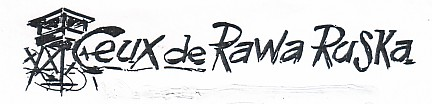 Ceux de Rawa Ruska